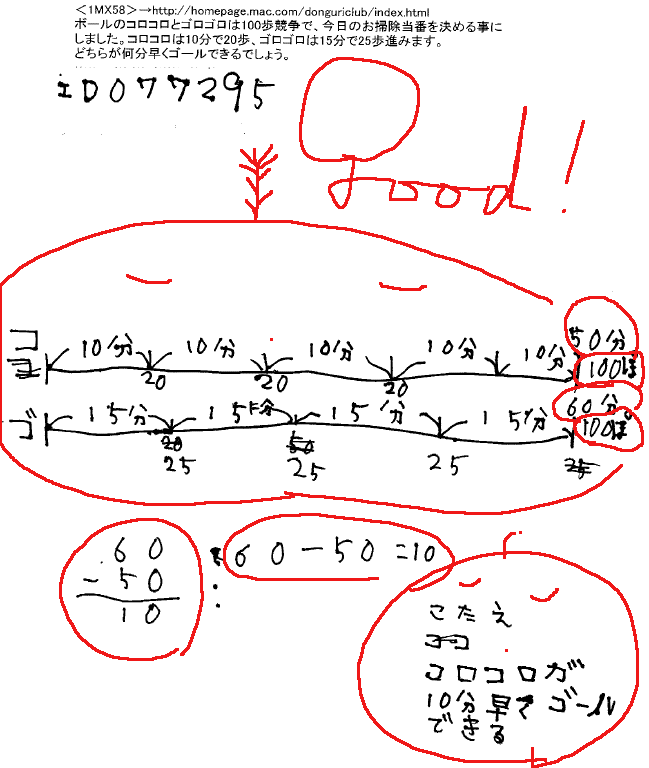 ＜1MX58＞→http://homepage.mac.com/donguriclub/index.html
ボールのコロコロとゴロゴロは100歩競争で、今日のお掃除当番を決める事に
しました。コロコロは10分で20歩、ゴロゴロは15分で25歩進みます。
どちらが何分早くゴールできるでしょう。
ID077295
good!
コ 10分 10分 10分 10分 10分 50分
20 20 20 100ぽ
60分
ゴ 15分 15分 15分 15分 100ぽ
20 50
25 25 25 25
60 60-50=10
-50
10
こたえ
コロコロガ
10分早くゴール
できる